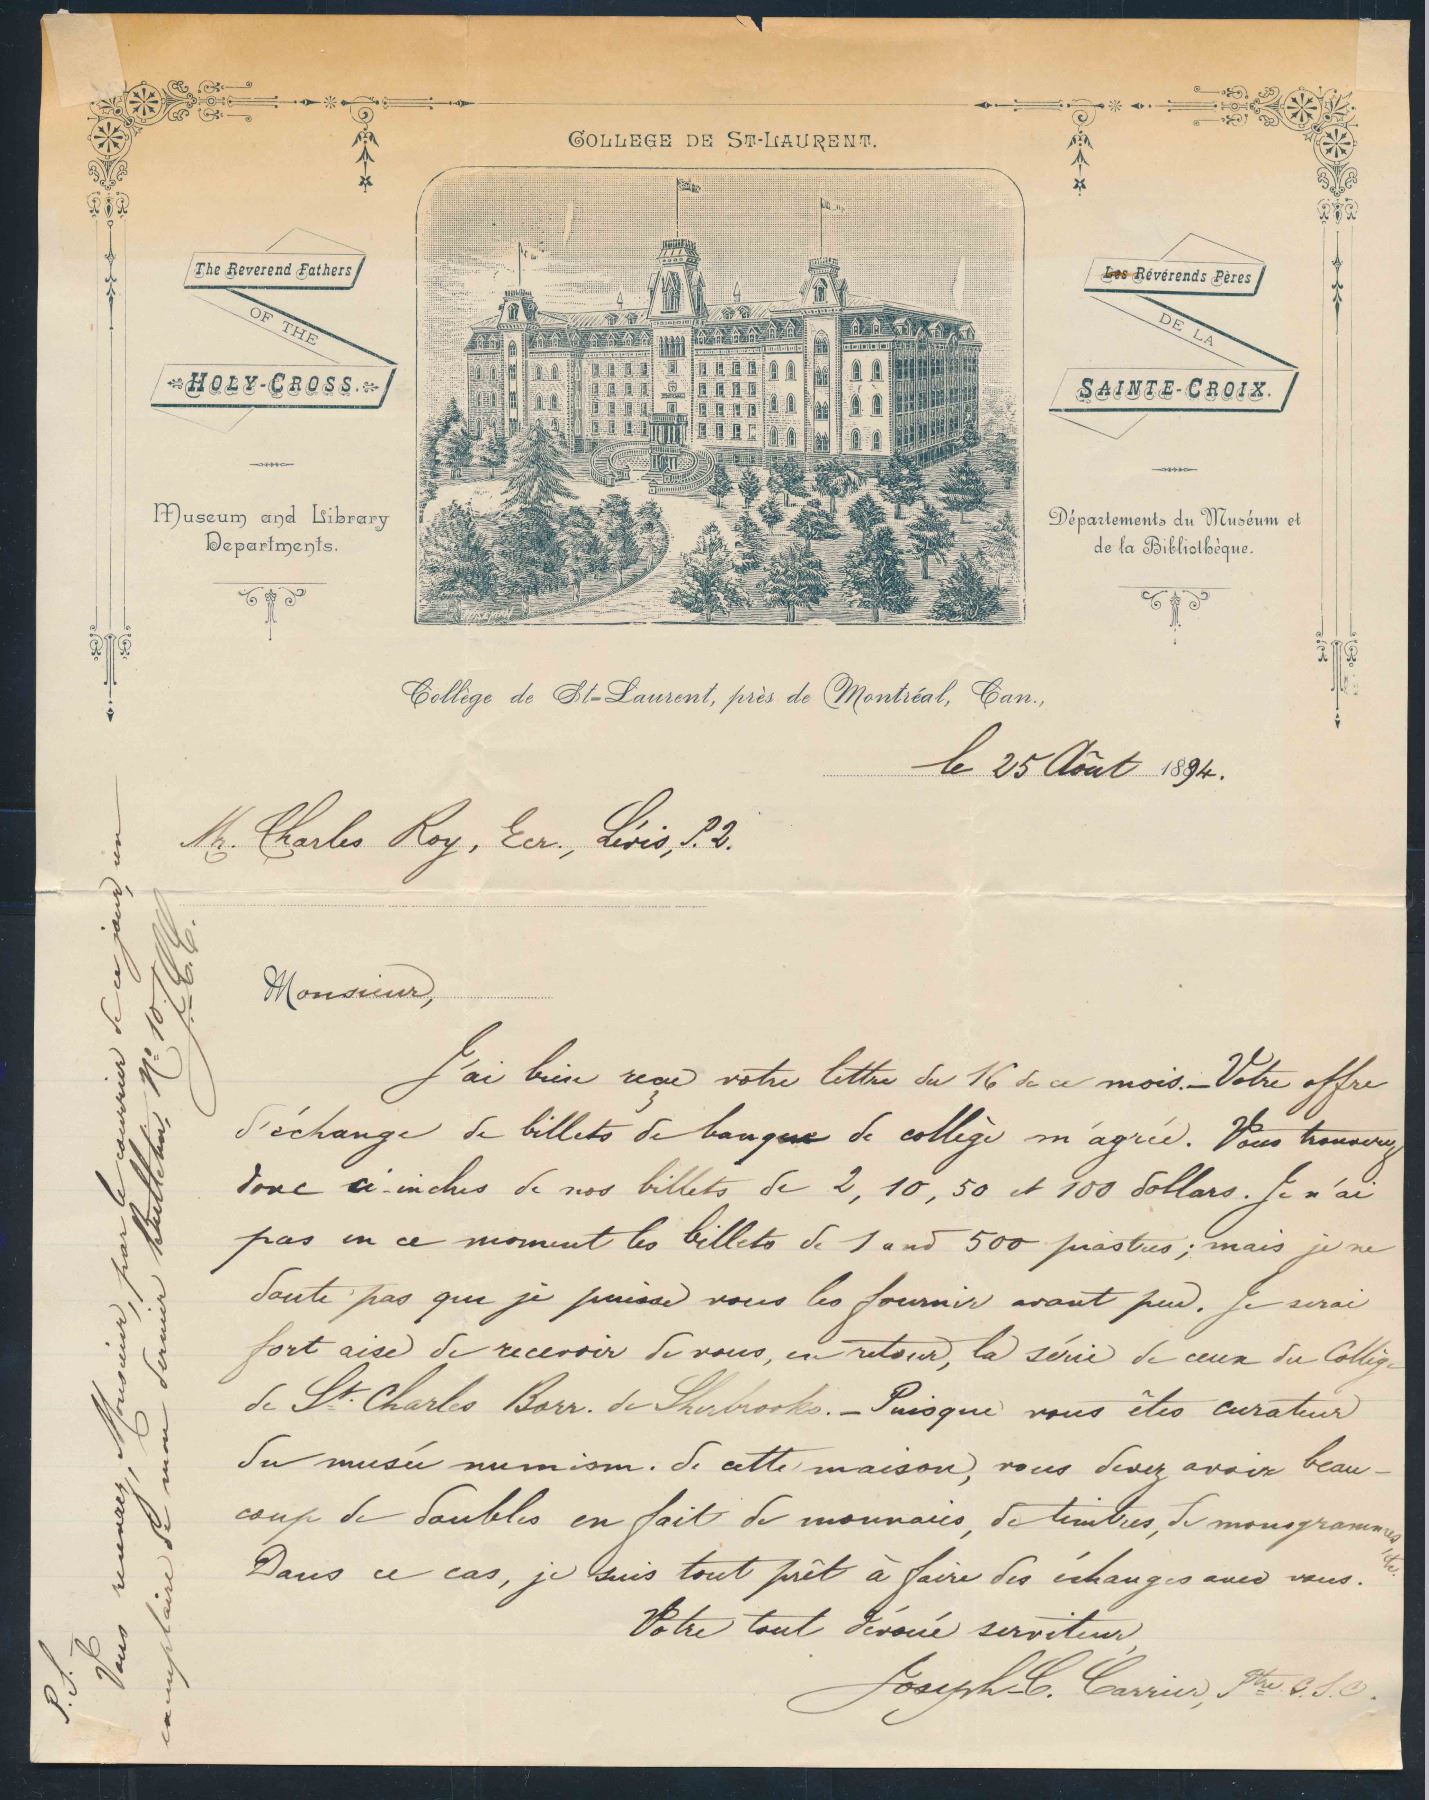 COLLEGE DE ST-LAURENT.
The Reverend Fathers
OF THE
HOLY-CROSS.
Museum and Library
Departments.
Les Révérends Pères
DE LA
SAINTE-CROIX.
Départements du Muséum et
de la Bibliothèque.
Collège de St-Laurent, près de Montréal, Can.,
le 25 Août 1894.
Mr. Charles Roy, Ecr., Lévis, P.Q.
Monsieur,
J'ai bien reçu votre lettre du 16 de ce mois.—Votre offre
d'échange de billets de banque de collège m'agrée. Vous trouverez
donc ci-inclus de nos billets de 2, 10, 50 et 100 dollars. Je n'ai
pas en ce moment les billets de 1 and 500 piastres; mais je ne
doute pas que je puisse vous les fournir avant peu. Je serai
fort aise de recevoir de vous, en retour, la série de ceux du Collège
de St. Charles Borr. de Sherbrooke.—Puisque vous êtes curateur
du musée numism. de cette maison, vous devez avoir beau-
coup de doubles en fait de monnaies, de timbres, de monogrammes, etc.
Dans ce cas, je suis tout prêt à faire des échanges avec vous.
Votre tout dévoué serviteur,
Joseph-C. Carrier, Ptre C.S.C.
P.S.
Vous recevrez, Monsieur, par le courrier de ce jour, un
exemplaire de mon dernier Bulletin, No 10.
J.-C.C.